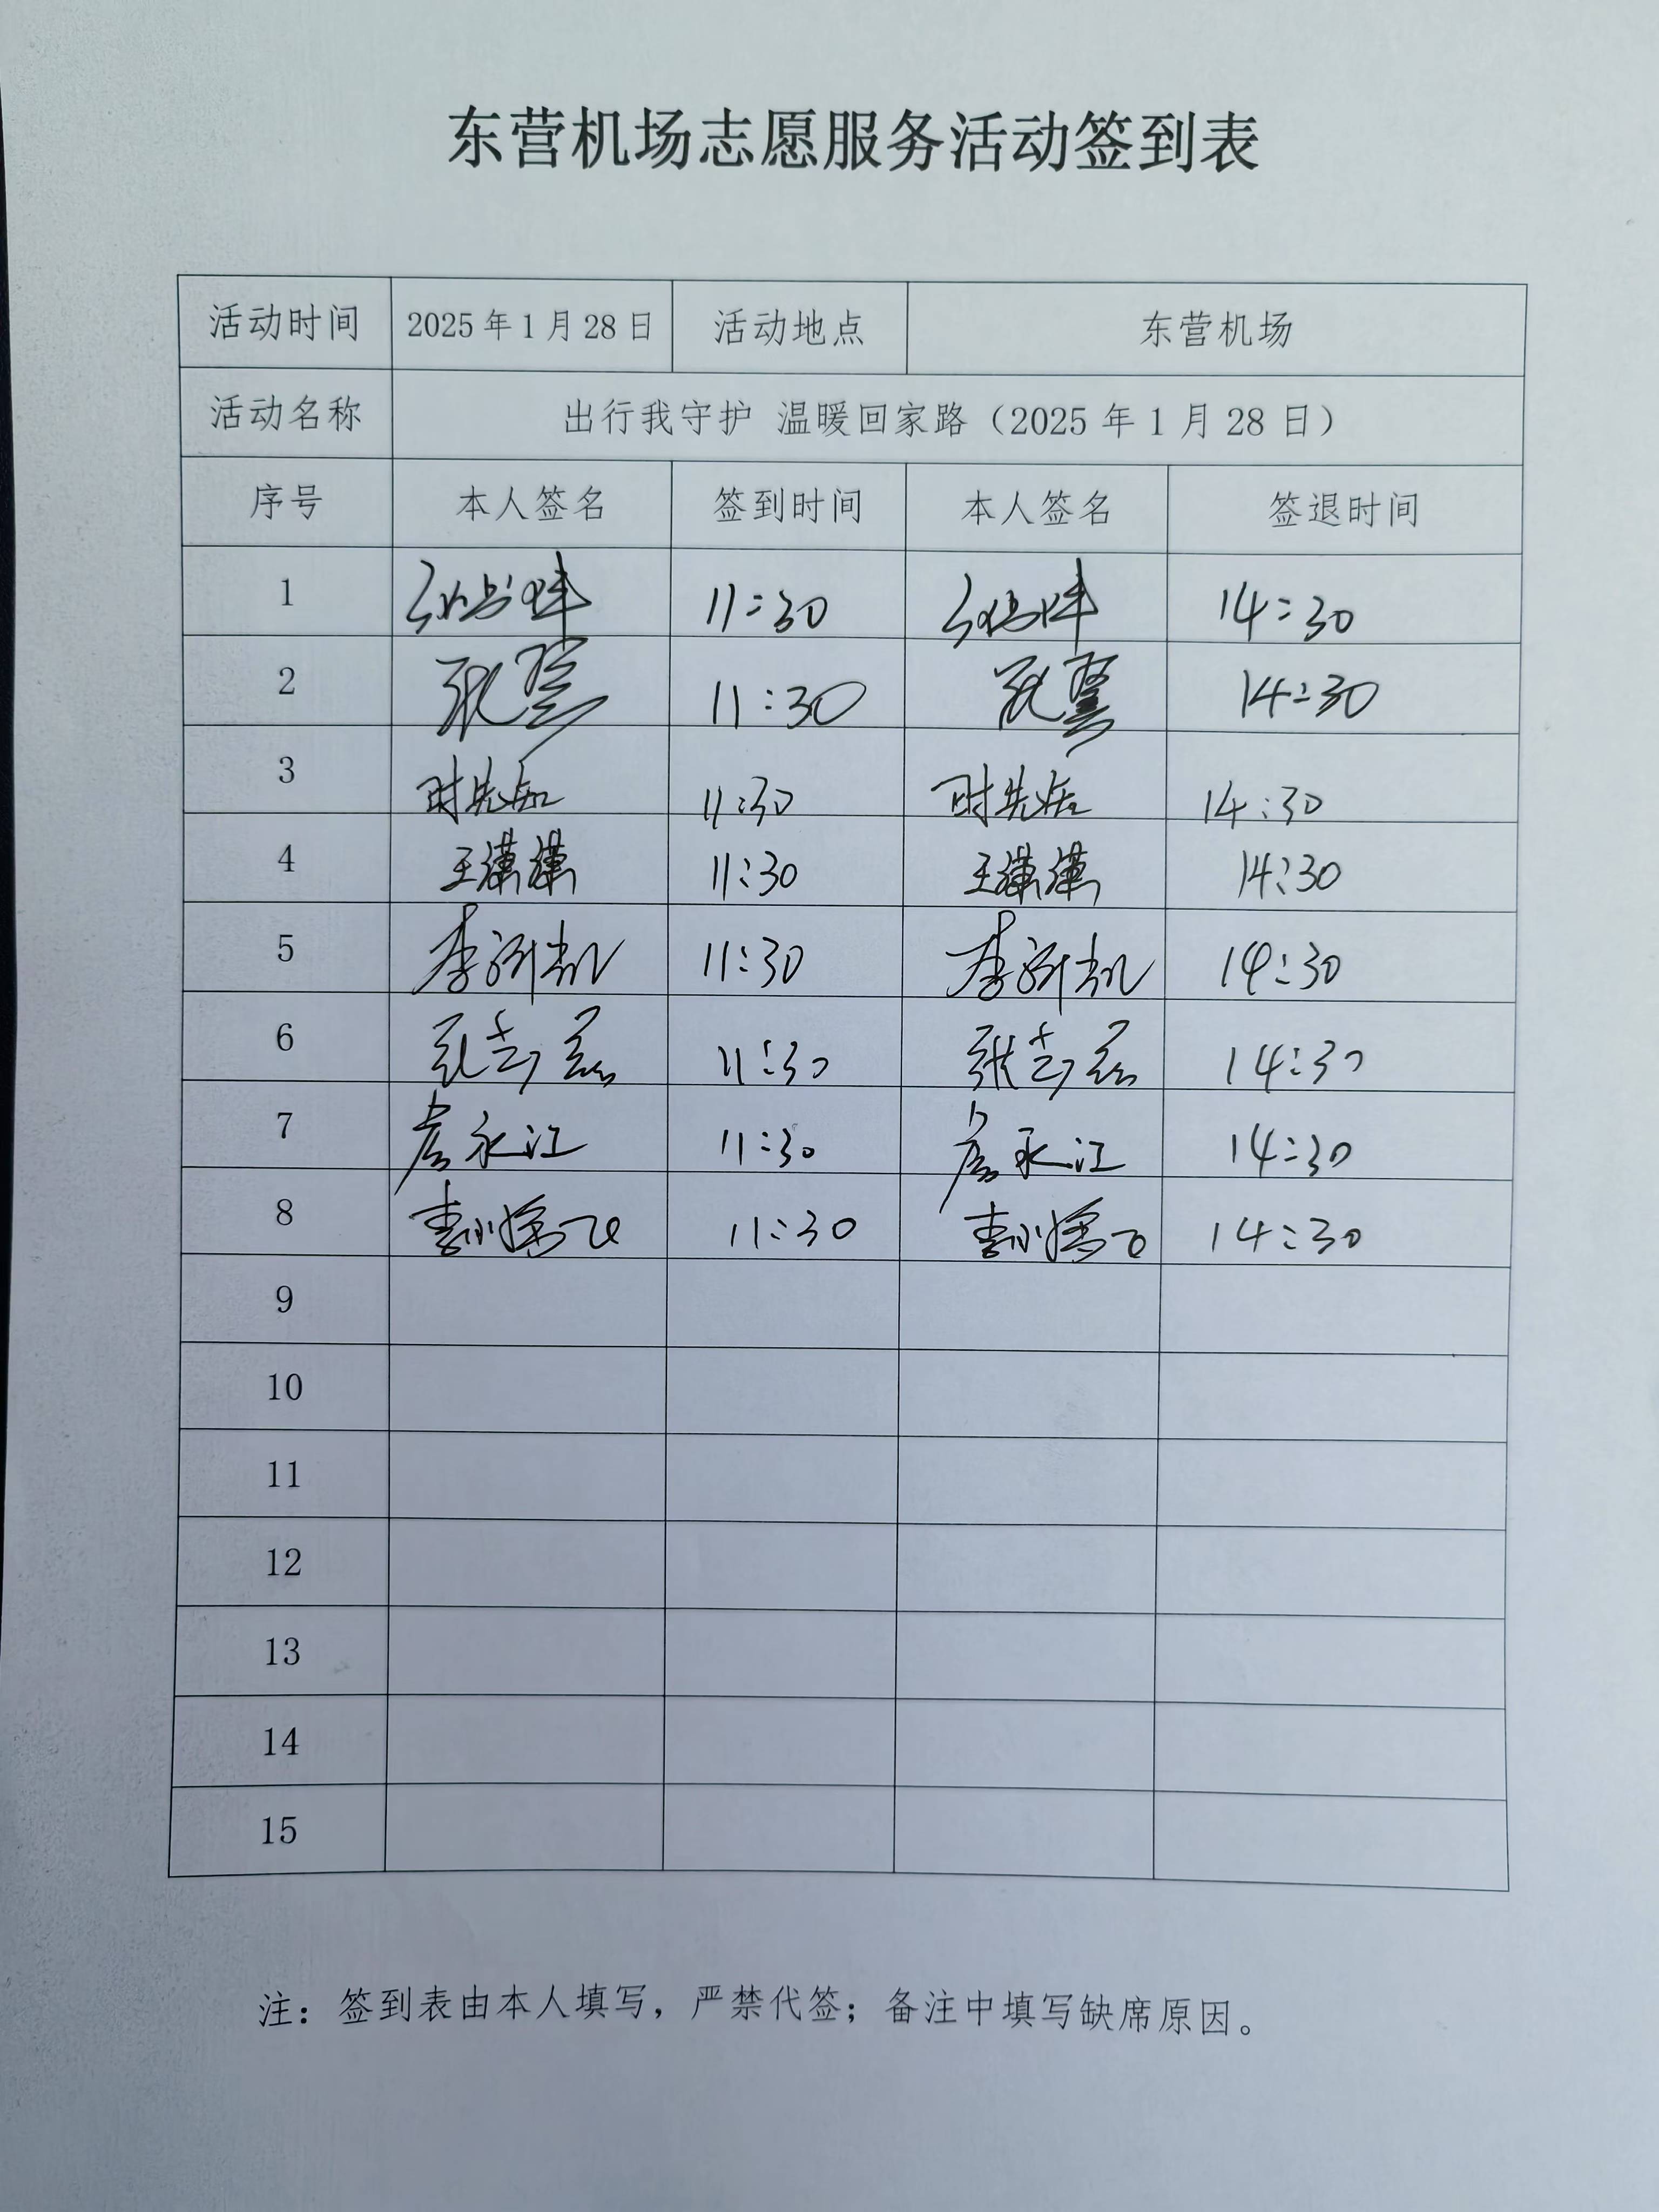 东营机场志愿服务活动签到表
活动时间 2025年1月28日 活动地点 东营机场
活动名称 出行我守护 温暖回家路（2025年1月28日）
序号 本人签名 签到时间 本人签名 签退时间
1 11:30 14:30
2 11:30 14:30
3 11:30 14:30
4 王潇潇 11:30 王潇潇 14:30
5 11:30 14:30
6 11:30 14:30
7 11:30 14:30
8 11:30 14:30
9
10
11
12
13
14
15
注：签到表由本人填写，严禁代签；备注中填写缺席原因。